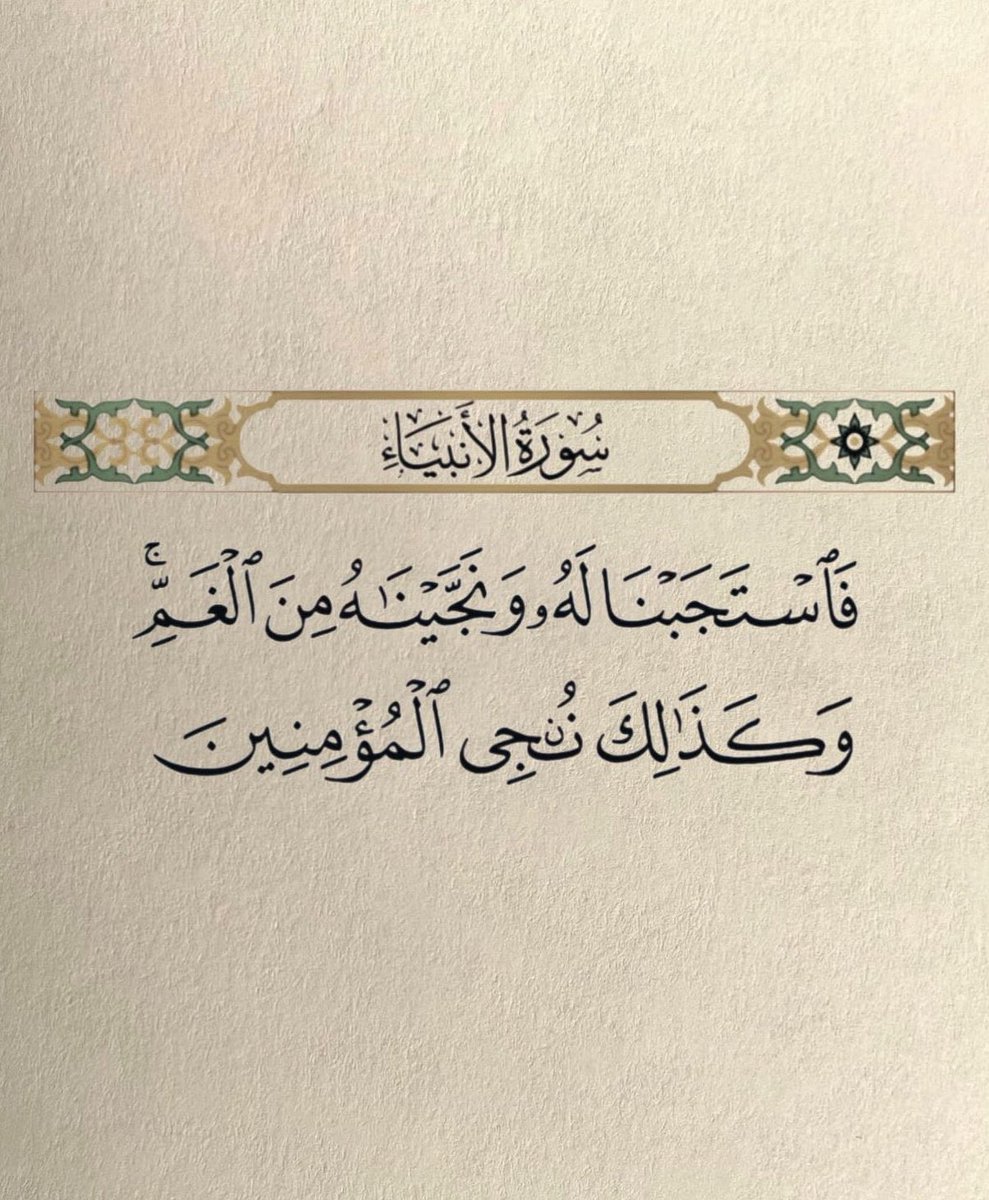 سُورَةُ الأَنبِيَاءِ
فَٱسْتَجَبْنَا لَهُۥ وَنَجَّيْنَـٰهُ مِنَ ٱلْغَمِّ ۚ
وَكَذَٰلِكَ نُـۨجِى ٱلْمُؤْمِنِينَ